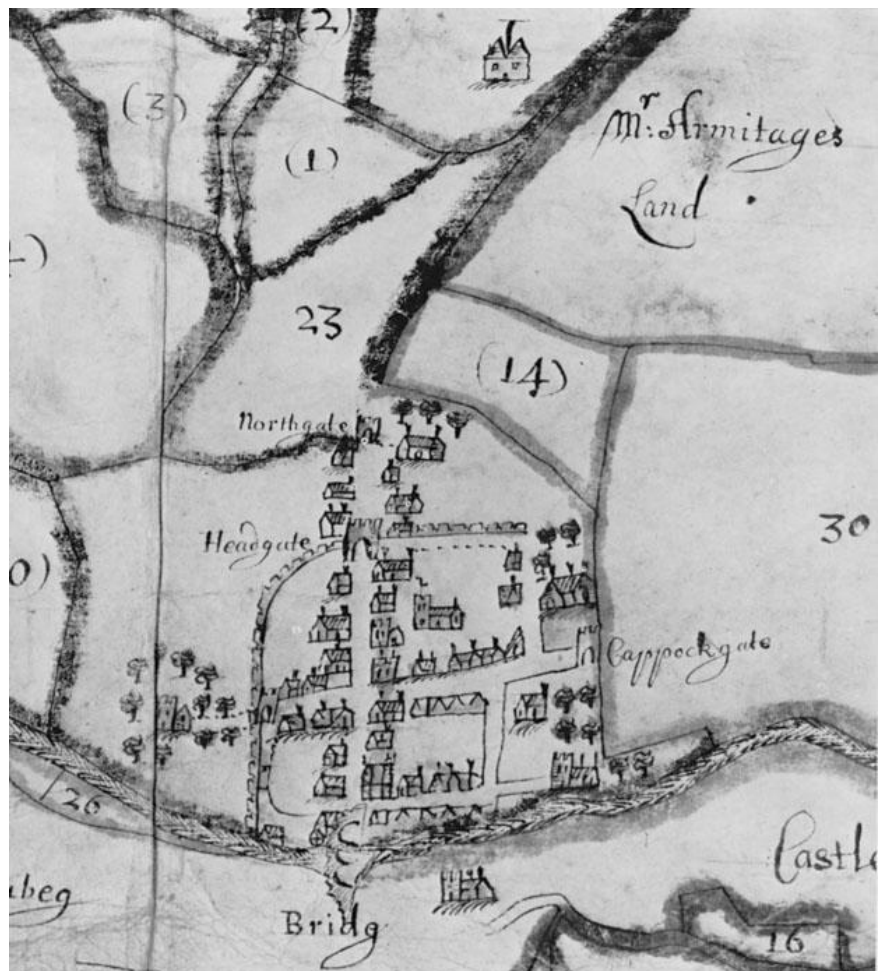 (2)
(3)
(1)
Mr: Armitages
Land
23
(14)
Northgate
30
Headgate
0)
Cappockgate
20
Castle
beg
Bridg
16